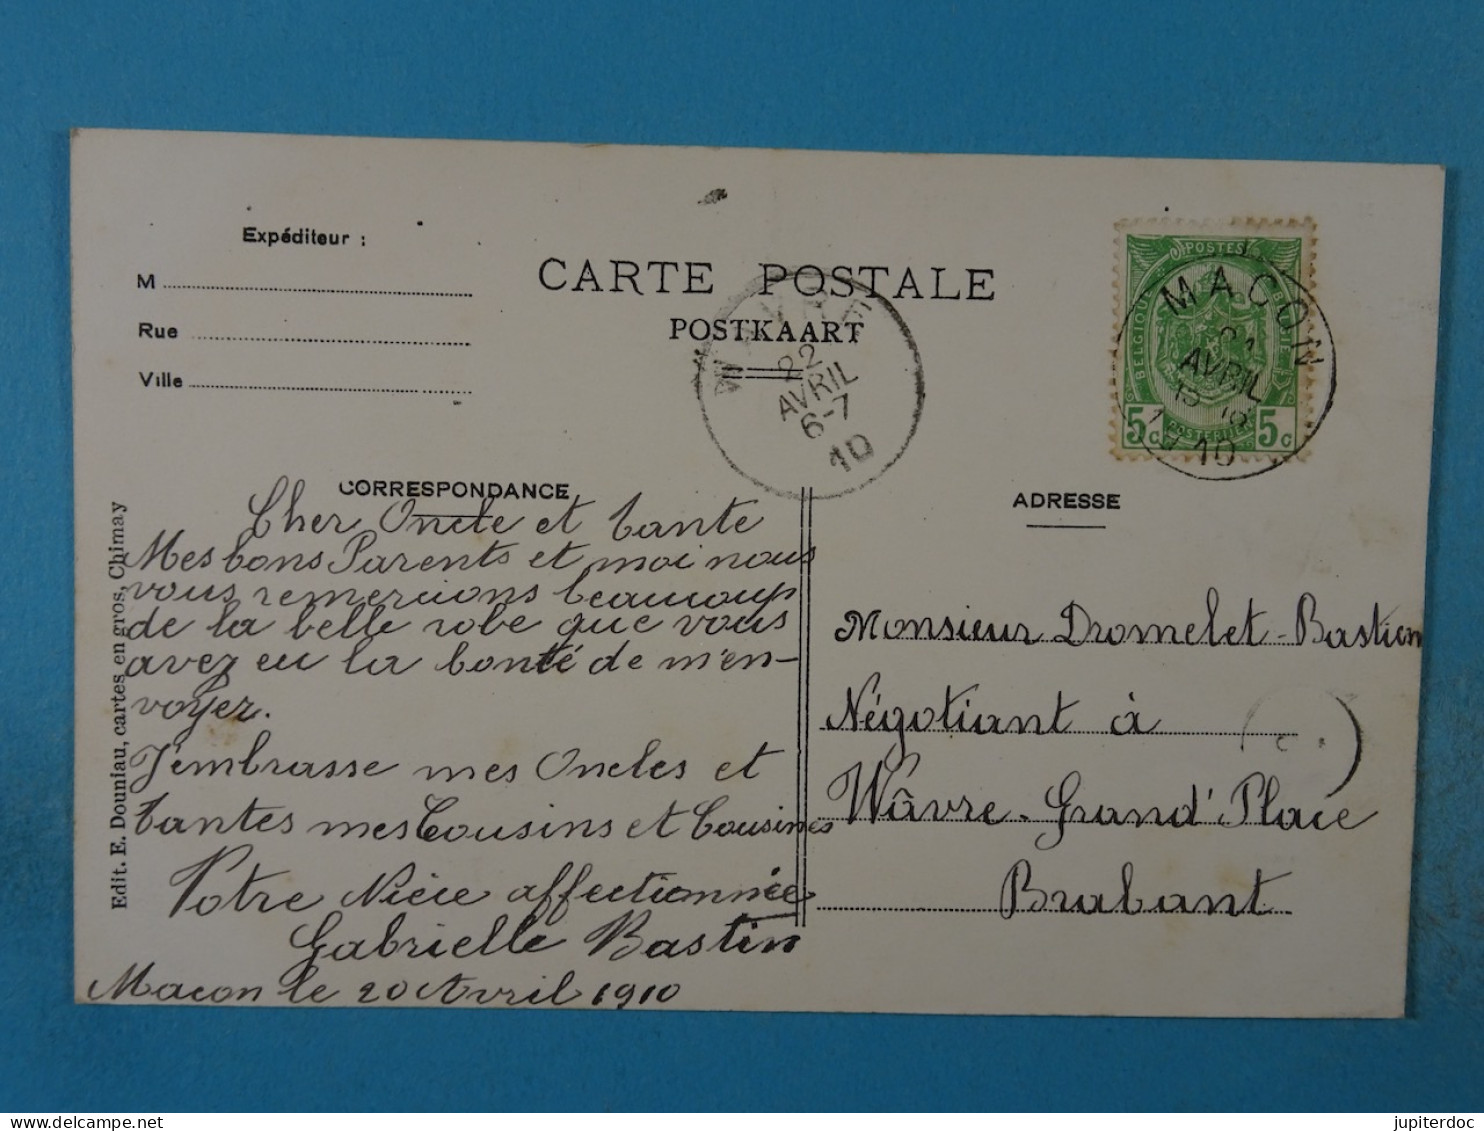 Expéditeur :
M
Rue
Ville
CARTE POSTALE
POSTKAART
WAVRE
22
AVRIL
6-7
10
POSTES
BELGIQUE
BELGIE
5c
POSTERIJEN
5c
MACON
21
AVRIL
19 10
CORRESPONDANCE
Cher Oncle et tante
Mes bons Parents et moi nous
vous remercions beaucoup
de la belle robe que vous
avez eu la bonté de m'en-
voyer.
J'embrasse mes Oncles et
tantes mes Cousins et Cousines
Votre Nièce affectionnée
Gabrielle Bastin
Macon le 20 Avril 1910
Edit. E. Douniau, cartes en gros, Chimay
ADRESSE
Monsieur Dromelet-Bastien
Négotiant à
Wâvre-Grand'Place
Brabant
jupiterdoc